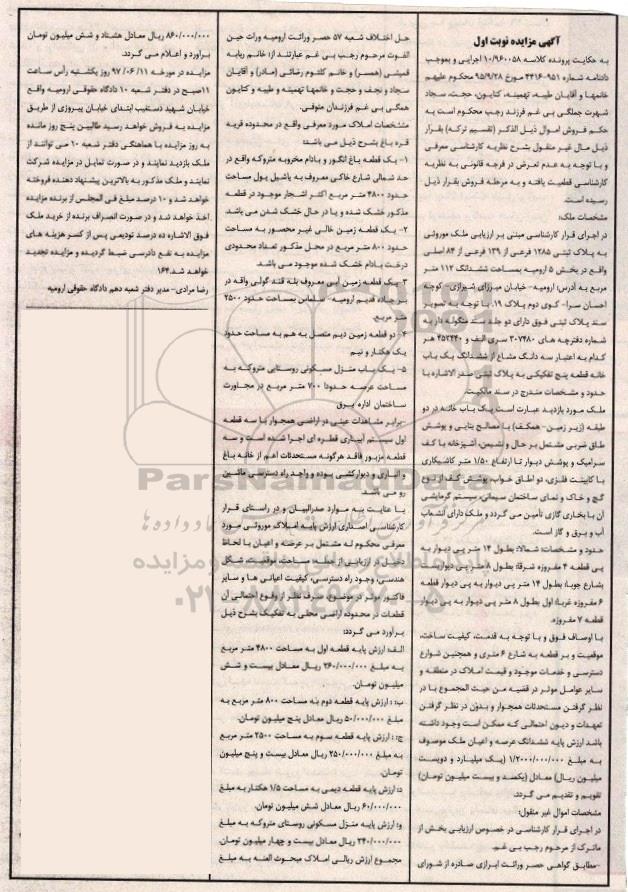 آگهی مزایده نوبت اول
به حکایت پرونده کلاسه ۱۰/۹۶۰۰۵۸ اجرایی و بموجب
دادنامه شماره ۹۵۱-۴۴۱۶ مورخ ۹۵/۹/۲۸ محکوم علیهم
خانمها و آقایان طیبه، تهمینه، کتایون، حجت، سجاد
شهرت جملگی بی غم فرزند رجب محکوم است به
حکم فروش اموال ذیل الذکر (تقسیم ترکه) بقرار
ذیل مال غیر منقول بشرح نظریه کارشناسی معرفی
و با توجه به عدم تعرض در فرجه قانونی به نظریه
کارشناسی قطعیت یافته و به مرحله فروش بقرار ذیل
رسیده است.
مشخصات ملک:
در اجرای قرار کارشناسی مبتنی بر ارزیابی ملک موروثی
به پلاک ثبتی ۱۲۸۵ فرعی از ۱۳۹ فرعی از ۸۴ اصلی
واقع در بخش ۵ ارومیه بمساحت ششدانگ ۱۱۲ متر
مربع به آدرس ارومیه- خیابان میرزای شیرازی- کوچه
احسان سرا- کوی دوم پلاک ۱۹. با توجه به تصویر
سند پلاک ثبتی فوق دارای دو جلد سند منگوله دار به
شماره دفترچه های ۳۰۷۴۸۰ سری الف و ۴۵۲۴۴۰ هر
کدام به اعتبار سه دانگ مشاع از ششدانگ یک باب
خانه قطعه پنج تفکیکی به پلاک ثبتی صدر الاشاره با
حدود و مشخصات مندرج در سند مالکیت.
ملک مورد بازدید عبارت است یک باب خانه در دو
طبقه (زیر زمین- همکف) با مصالح بنایی و پوشش
طاق ضربی مشتمل بر حال و نشیمن، آشپزخانه با کف
سرامیک و پوشش دیوار تا ارتفاع ۱/۵۰ متر کاشیکاری
با کابینت فلزی، دو اطاق خواب، پوشش کف از نوع
گچ و خاک و نمای ساختمان سیمانی، سیستم گرمایشی
آن با بخاری گازی تأمین می گردد و ملک دارای انشعاب
آب و برق و گاز است.
حدود و مشخصات: شمالا: بطول ۱۴ متر پی دیوار به
پی قطعه ۴ مفروزه شرقا: بطول ۸ متر پی دیواریست
بشارع جوبا: بطول ۱۴ متر پی دیوار به پی دیوار قطعه
۶ مفروزه غربا: اول بطول ۸ متر پی دیوار به پی دیوار
قطعه ۷ مفروزه.
با اوصاف فوق و با توجه به قدمت، کیفیت ساخت،
موقعیت و بر قطعه به شارع ۶ متری و همچنین شوارع
دسترسی و خدمات موجود و قیمت املاک در منطقه و
سایر عوامل موثر در قضیه من حیث المجموع با در
نظر گرفتن مستحدثات همجوار و بدون در نظر گرفتن
تعهدات و دیون احتمالی که ممکن است وجود داشته
باشد ارزش پایه ششدانگ عرصه و اعیان ملک موصوف
به مبلغ ۱/۲۰۰۰/۰۰۰/۰۰۰ (یک میلیارد و دویست
میلیون ریال) معادل (یکصد و بیست میلیون تومان)
تقویم و تقدیم می گردد.
مشخصات اموال غیر منقول:
در اجرای قرار کارشناسی در خصوص ارزیابی بخش از
ماترک از مرحوم رجب بی غم.
-مطابق گواهی حصر وراثت ابرازی صادره از شورای
حل اختلاف شعبه ۵۷ حصر وراثت ارومیه وراث حین
الفوت مرحوم رجب بی غم عبارتند از: خانم ربابه
قمیشی (همسر) و خانم کلثوم رشائی (مادر) و آقایان
سجاد و نجف و حجت و خانمها تهمینه و طیبه و کتایون
همگی بی غم فرزندان متوفی.
مشخصات املاک مورد معرفی واقع در محدوده قریه
قره باغ بشرح ذیل می باشد:
۱- یک قطعه باغ انگور و بادام مخروبه متروکه واقع در
حد شمالی شارع خاکی معروف به یاشیل یول مساحت
حدود ۴۸۰۰ متر مربع اکثر اشجار موجود در قطعه
مذکور خشک شده و یا در حال خشک شدن می باشد.
۲- یک قطعه زمین خالی غیر محصور به مساحت
حدود ۸۰۰ متر مربع در محل مذکور تعداد محدودی
درخت بادام خشک شده موجود می باشد
۳- یک قطعه زمین آبی معروف بله قند گولی واقه در
بر جاده قدیم ارومیه- سلماس بمساحت حدود ۲۵۰۰
متر مربع.
۴- دو قطعه زمین دیم متصل به هم به مساحت حدود
یک هکتار و نیم
۵- یک باب منزل مسکونی روستایی متروکه به
مساحت عرصه حدودا ۷۰۰ متر مربع در مجاورت
ساختمان اداره برق
-برابر مشاهدات عینی در اراضی همجوار با سه قطعه
اول سیستم آبیاری قطره ای اجرا شده است و سه
قطعه مزبور فاقد هرگونه مستحدثات اعم از خانه باغ
و انباری و دیوارکشی بوده و واجد راه دسترسی ماشین
رو می باشد.
با عنایت به موارد صدرالبیان و در راستای قرار
کارشناسی اصداری ارزش پایه املاک موروثی مورد
معرفی محکوم له مشتمل بر عرصه و اعیان با لحاظ
دخیل در ارزیابی از جمله: مساحت، موقعیت، شکل
هندسی، وجود راه دسترسی، کیفیت اعیانی ها و سایر
فاکتور موثر در موضوع، صرف نظر از وقوع احتمالی آن
قطعات در محدوده اراضی محلی به تفکیک بشرح ذیل
برآورد می گردد:
الف: ارزش پایه قطعه اول به مساحت ۴۸۰۰ متر مربع
به مبلغ ۲۶۰/۰۰۰/۰۰۰ ریال معادل بیست و شش
میلیون تومان.
ب: ارزش پایه قطعه دوم به مساحت ۸۰۰ متر مربع به
مبلغ ۵۰/۰۰۰/۰۰۰ ریال معادل پنج میلیون تومان.
ج: ارزش پایه قطعه سوم به مساحت ۲۵۰۰ متر مربع
به مبلغ ۲۵۰/۰۰۰/۰۰۰ ریال معادل بیست و پنج میلیون
تومان.
د: ارزش پایه قطعه دیمی به مساحت ۱/۵ هکتار به مبلغ
۶۰/۰۰۰/۰۰۰ ریال معادل شش میلیون تومان.
و: ارزش پایه منزل مسکونی روستای متروکه به مبلغ
۲۴۰/۰۰۰/۰۰۰ ریال معادل بیست و چهار میلیون تومان.
مجموع ارزش ریالی املاک مبحوث العنه به مبلغ
۸۶۰/۰۰۰/۰۰۰ ریال معادل هشتاد و شش میلیون تومان
برآورد و اعلام می گردد.
مزایده در مورخه ۹۷/۰۶/۱۱ روز یکشنبه رأس ساعت
۱۱صبح در دفتر شعبه ۱۰ دادگاه حقوقی ارومیه واقع
خیابان شهید دستغیب ابتدای خیابان پیروزی از طریق
مزایده به فروش خواهد رسید طالبین پنج روز مانده
به روز مزایده با هماهنگی دفتر شعبه ۱۰ می توانند از
ملک بازدید نمایند و در صورت تمایل در مزایده شرکت
نمایند و ملک مذکور به بالاترین پیشنهاد دهنده فروخته
خواهد شد و ۱۰ درصد مبلغ فی المجلس از برنده مزایده
اخذ خواهد شد و در صورت انصراف برنده از خرید ملک
فوق الاشاره ده درصد تودیعی پس از کسر هزینه های
مزایده به نفع دادرسی ضبط گردیده و مزایده تجدید
خواهد شد.۱۶۴
رضا مرادی- مدیر دفتر شعبه دهم دادگاه حقوقی ارومیه
ParsNamadData